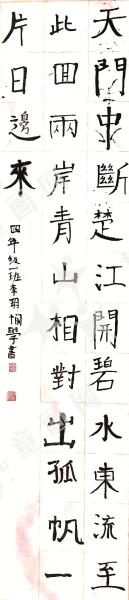 天門中斷楚江開碧水東流至
此回兩岸青山相對出孤帆一
片日邊來
四年級一班李羽恫學書